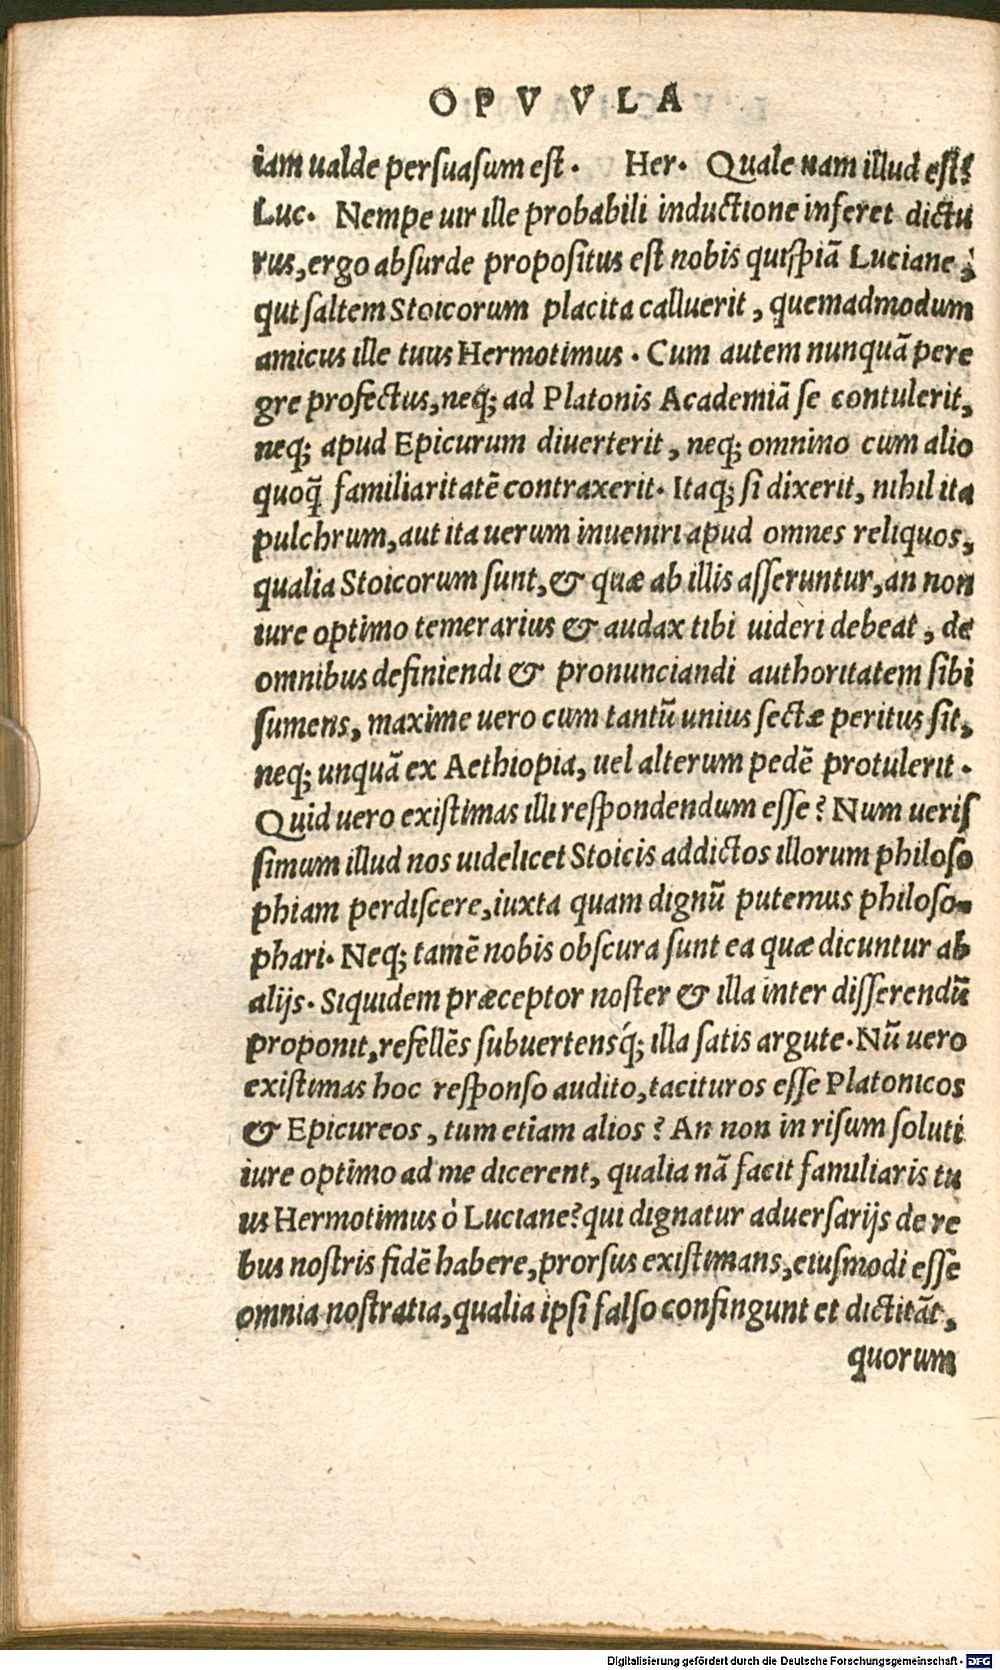 OPVVLA
iam ualde persuasum est. Her. Quale nam illud est?
Luc. Nempe uir ille probabili inductione inferet dictu
rus, ergo absurde propositus est nobis quispiã Luciane,
qui saltem Stoicorum placita calluerit, quemadmodum
amicus ille tuus Hermotimus. Cum autem nunquã pere
gre profectus, neq; ad Platonis Academiã se contulerit,
neq; apud Epicurum diuerterit, neq; omnino cum alio
quoq̃ familiaritatẽ contraxerit. Itaq; si dixerit, nihil ita
pulchrum, aut ita uerum inueniri apud omnes reliquos,
qualia Stoicorum sunt, & quæ ab illis asseruntur, an non
iure optimo temerarius & audax tibi uideri debeat, de
omnibus definiendi & pronunciandi authoritatem sibi
sumens, maxime uero cum tantũ unius sectæ peritus sit,
neq; unquã ex Aethiopia, uel alterum pedẽ protulerit.
Quid uero existimas illi respondendum esse? Num ueris
simum illud nos uidelicet Stoicis addictos illorum philoso
phiam perdiscere, iuxta quam dignũ putemus philoso-
phari. Neq; tamẽ nobis obscura sunt ea quæ dicuntur ab
alijs. Siquidem præceptor noster & illa inter disserendũ
proponit, refellẽs subuertensq́; illa satis argute. Nũ uero
existimas hoc responso audito, tacituros esse Platonicos
& Epicureos, tum etiam alios? An non in risum soluti
iure optimo ad me dicerent, qualia nã facit familiaris tu
us Hermotimus ò Luciane? qui dignatur aduersarijs de re
bus nostris fidẽ habere, prorsus existimans, eiusmodi esse
omnia nostratia, qualia ipsi falso confingunt et dictitãt,
quorum
Digitalisierung gefördert durch die Deutsche Forschungsgemeinschaft - DFG